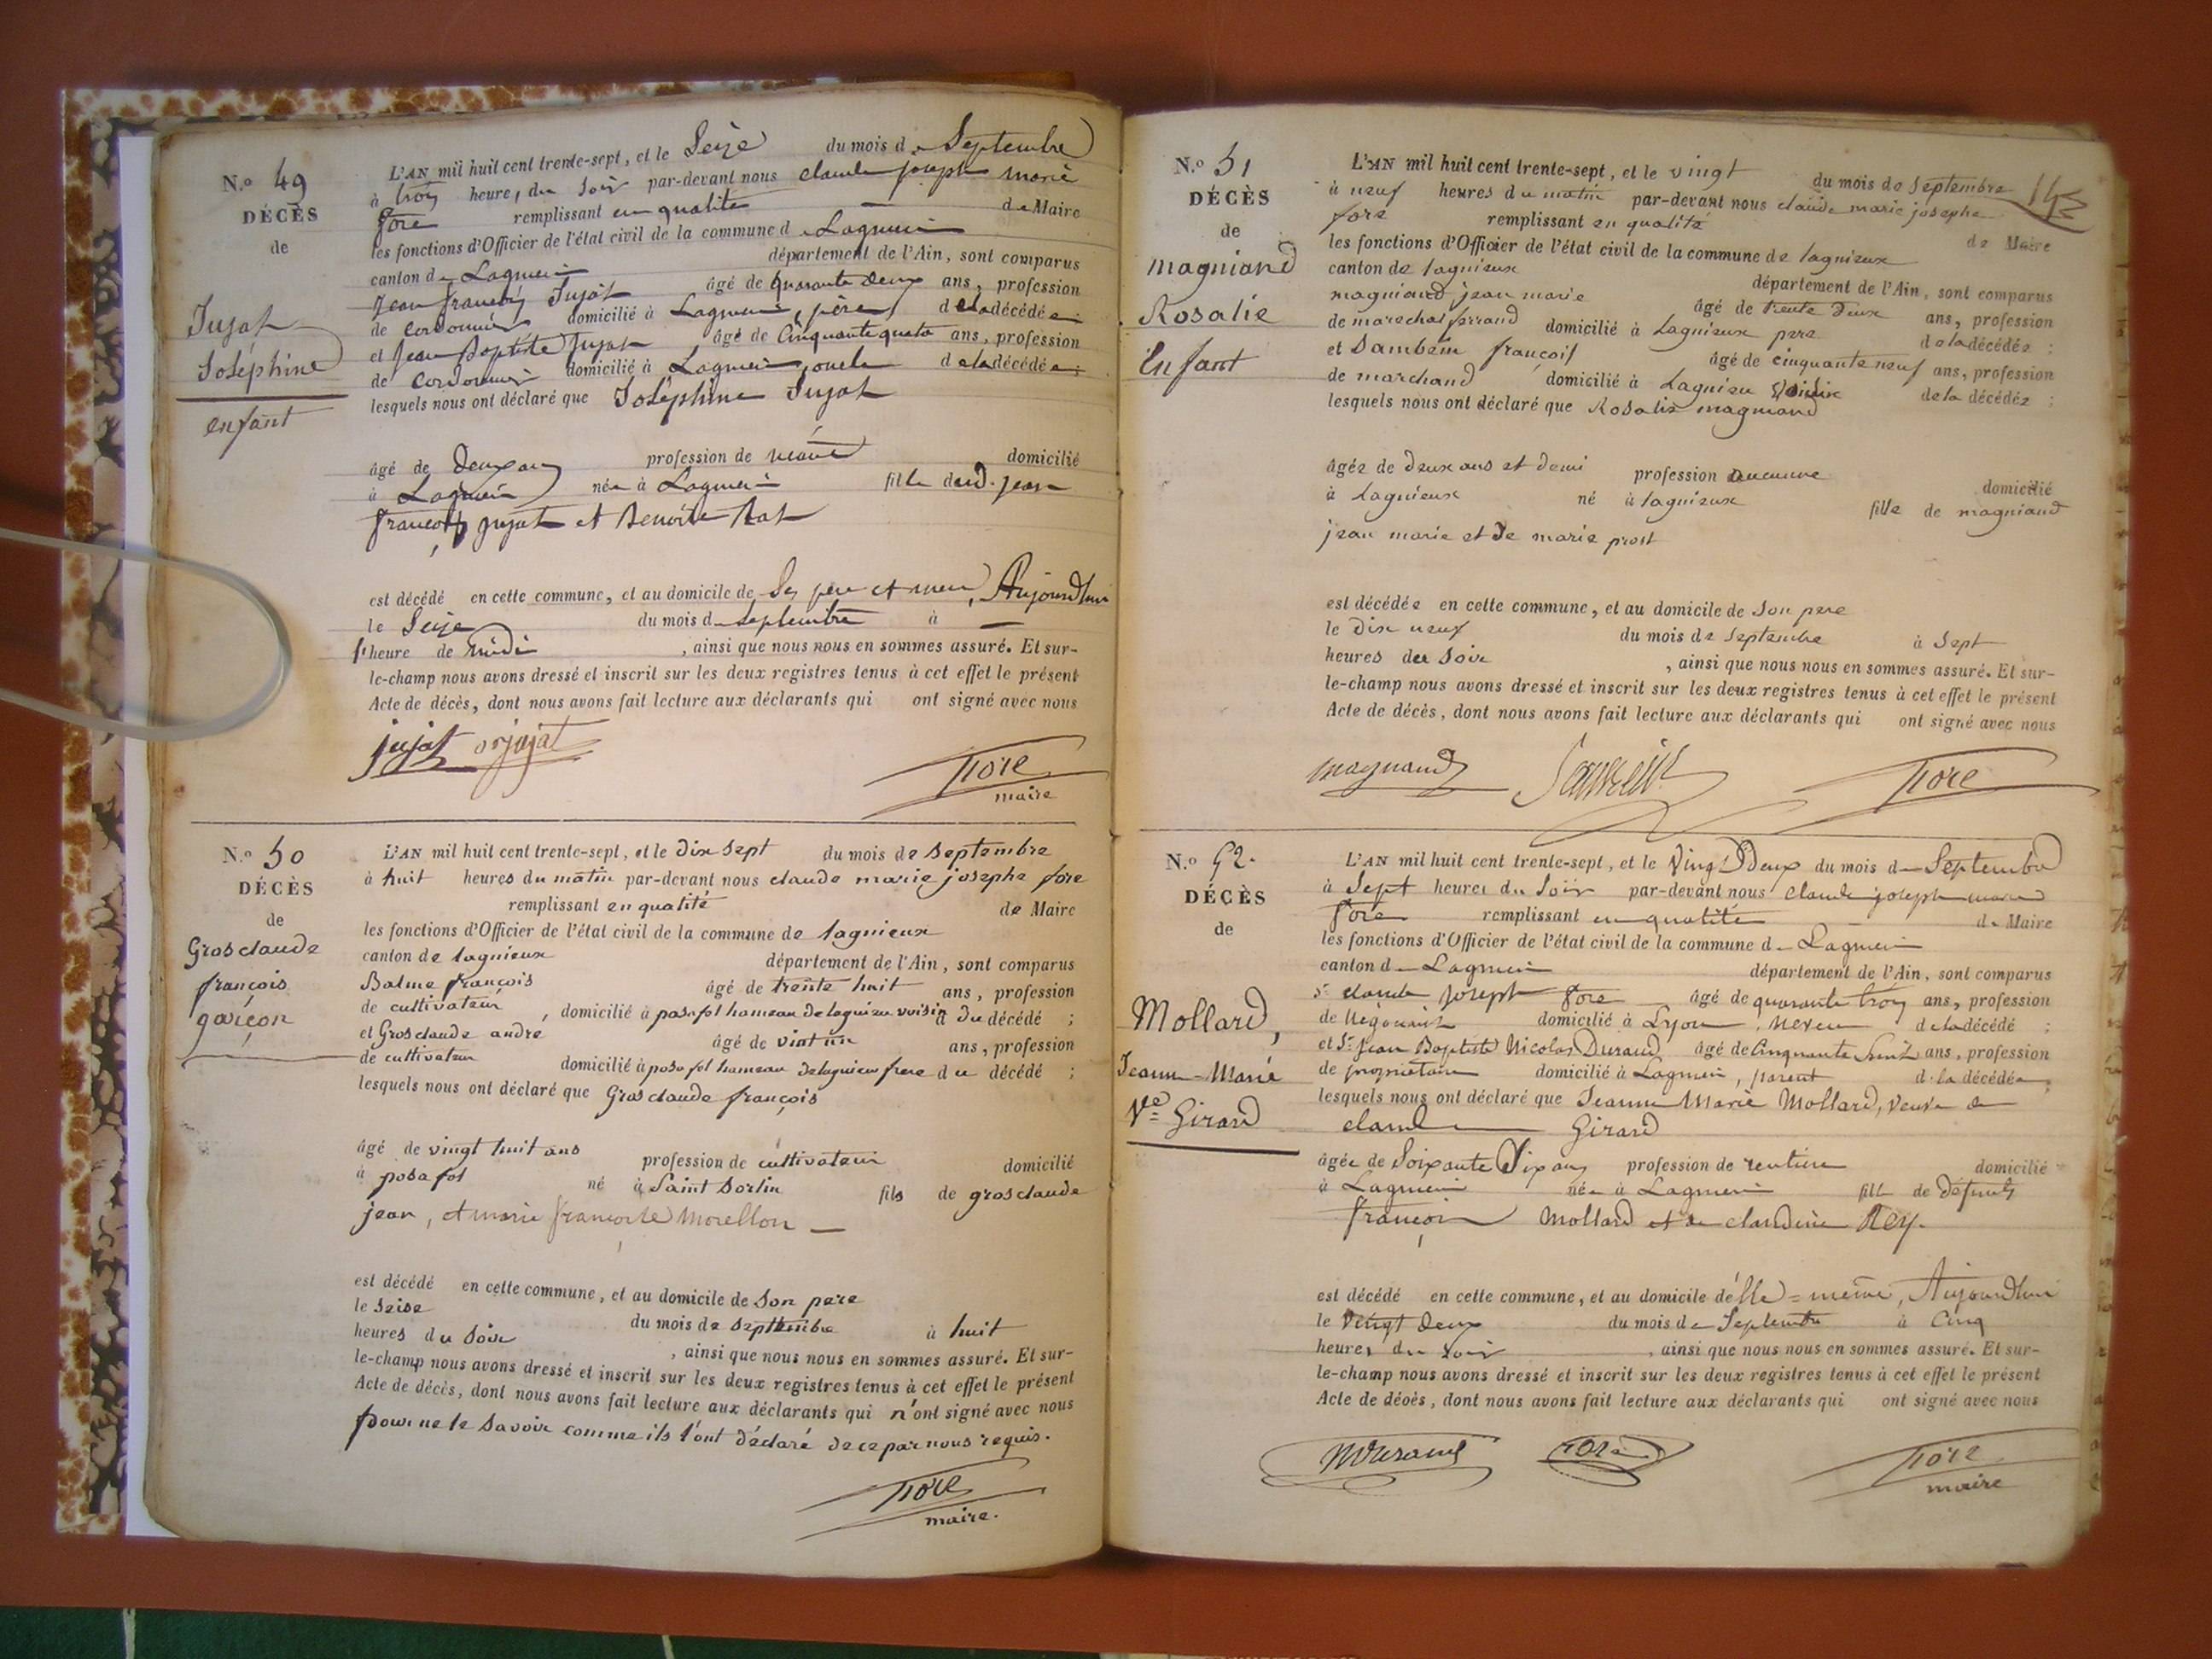 N.° 49
DÉCÈS
de
Jujat
Joséphine
enfant
L'AN mil huit cent trente-sept, et le Seize du mois de Septembre
à trois heure, du Soir par-devant nous claude joseph marie
fore remplissant en qualité de Maire
les fonctions d'Officier de l'état civil de la commune de Lagnieu
canton de Lagnieu département de l'Ain, sont comparus
Jean françois Jujat âgé de quarante deux ans, profession
de cordonnier domicilié à Lagnieu, père de la décédée
et Jean Baptiste Jujat âgé de Cinquante quatre ans, profession
de cordonnier domicilié à Lagnieu, oncle de la décédée;
lesquels nous ont déclaré que Joséphine Jujat
âgé de deux ans profession de néant domicilié
à Lagnieu née à Lagnieu fille dud. jean
françois jujat et Benoite Rat
est décédé en cette commune, et au domicile de Ses père et mère, Aujourdhui
le Seize du mois de Septembre à
l'heure de midi, ainsi que nous nous en sommes assuré. Et sur-
le-champ nous avons dressé et inscrit sur les deux registres tenus à cet effet le présent
Acte de décès, dont nous avons fait lecture aux déclarants qui ont signé avec nous
jujat jujat
fore
maire
N.° 50
DÉCÈS
de
Grosclaude
françois
garçon
L'AN mil huit cent trente-sept, et le dix sept du mois de septembre
à huit heures du matin par-devant nous claude marie josephe fore
remplissant en qualité de Maire
les fonctions d'Officier de l'état civil de la commune de lagnieux
canton de lagnieux département de l'Ain, sont comparus
Balme françois âgé de trente huit ans, profession
de cultivateur, domicilié à posafol hameau de lagnieu voisin du décédé;
et Grosclaude andre âgé de vint un ans, profession
de cultivateur domicilié à posafol hameau de lagnieu frere du décédé;
lesquels nous ont déclaré que Grosclaude françois
âgé de vingt huit ans profession de cultivateur domicilié
à posafol né à Saint Sorlin fils de grosclaude
jean, et marie françoise Morellon
est décédé en cette commune, et au domicile de son pere
le seise du mois de septembre à huit
heures du soir, ainsi que nous nous en sommes assuré. Et sur-
le-champ nous avons dressé et inscrit sur les deux registres tenus à cet effet le présent
Acte de décès, dont nous avons fait lecture aux déclarants qui n'ont signé avec nous
pour ne le savoir comme ils l'ont déclaré de ce par nous requis.
fore
maire.
N.° 51
DÉCÈS
de
magniand
Rosalie
Enfant
L'AN mil huit cent trente-sept, et le vingt du mois de septembre
à neuf heures du matin par-devant nous claude marie josephe
fore remplissant en qualité de Maire
les fonctions d'Officier de l'état civil de la commune de lagnieux
canton de lagnieux département de l'Ain, sont comparus
magniand jean marie âgé de trente deux ans, profession
de marechal ferrand domicilié à Lagnieux pere de la décédée;
et Dambein françois âgé de cinquante neuf ans, profession
de marchand domicilié à Lagnieu voisin de la décédée;
lesquels nous ont déclaré que Rosalie magniand
âgée de deux ans et demi profession aucunne domicilié
à Lagnieux né à lagnieux fille de magniand
jean marie et de marie prost
est décédée en cette commune, et au domicile de son pere
le dix neuf du mois de septembre à sept
heures du soir, ainsi que nous nous en sommes assuré. Et sur-
le-champ nous avons dressé et inscrit sur les deux registres tenus à cet effet le présent
Acte de décès, dont nous avons fait lecture aux déclarants qui ont signé avec nous
magniand fore
N.° 52.
DÉCÈS
de
Mollard,
Jeanne-Marie
Vve Girard
L'AN mil huit cent trente-sept, et le Vingt Deux du mois de Septembre
à Sept heures du Soir par-devant nous Claude joseph marie
fore remplissant en qualité de Maire
les fonctions d'Officier de l'état civil de la commune de Lagnieu
canton de Lagnieu département de l'Ain, sont comparus
Sr claude joseph fore âgé de quarante trois ans, profession
de Négociant domicilié à Lyon, Neveu de la décédé;
et Sr Jean Baptiste Nicolas Durand âgé de Cinquante huit ans, profession
de propriétaire domicilié à Lagnieu, parent de la décédée;
lesquels nous ont déclaré que Jeanne Marie Mollard, veuve de
claude Girard
âgée de Soixante Dix ans profession de rentière domicilié
à Lagnieu née à Lagnieu fille de défunts
françois Mollard et de claudine Rey.
est décédé en cette commune, et au domicile d'elle=même, Aujourdhui
le Vingt deux du mois de Septembre à Cinq
heures du soir, ainsi que nous nous en sommes assuré. Et sur-
le-champ nous avons dressé et inscrit sur les deux registres tenus à cet effet le présent
Acte de décès, dont nous avons fait lecture aux déclarants qui ont signé avec nous
NDurand fore
fore
maire